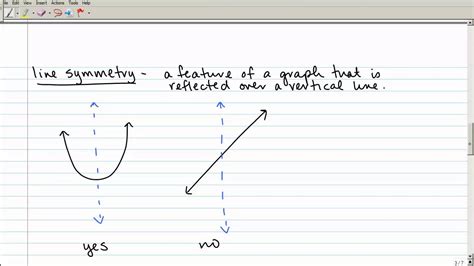 Edit View Insert Actions Tools Help
line symmetry - a feature of a graph that is
reflected over a vertical line.
yes no
2/7